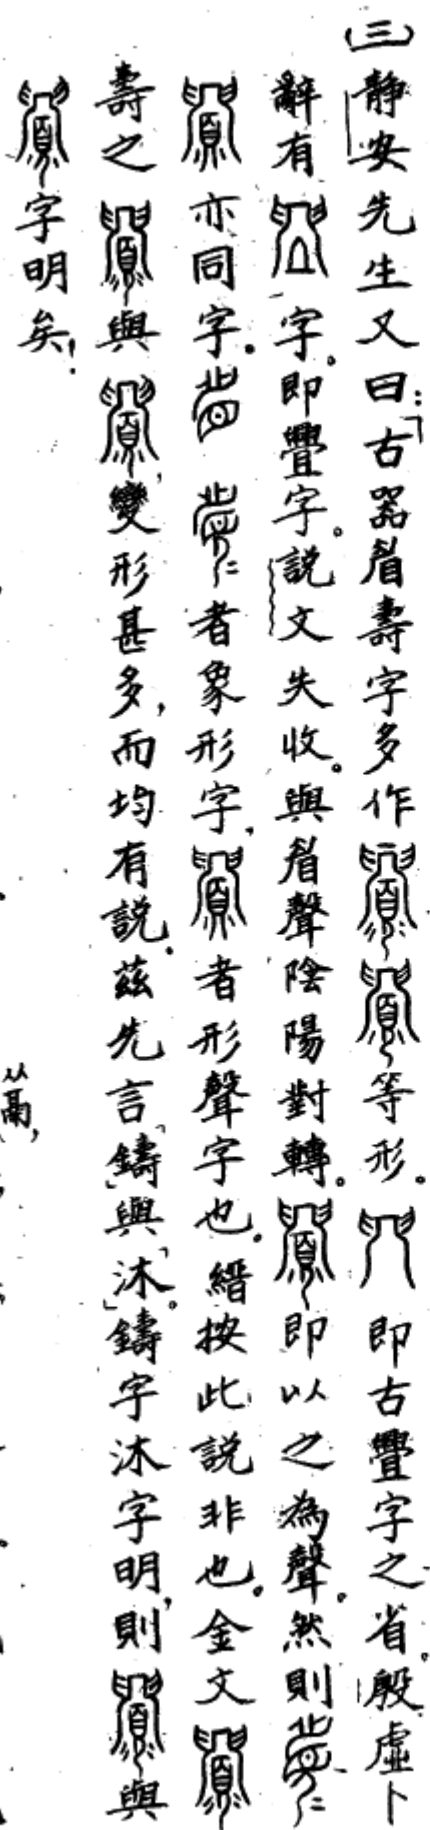 (三)静安先生又曰：「古器眉壽字多作等形。即古釁字之省。殷虛卜
辭有字。即釁字。説文失收。與眉聲陰陽對轉。即以之為聲。然則
亦同字。者象形字，者形聲字也。縉按此説非也。金文
壽之與變形甚多，而均有説。茲先言「鑄」與「沬」。鑄字沬字明，則與
字明矣！
从鬲，